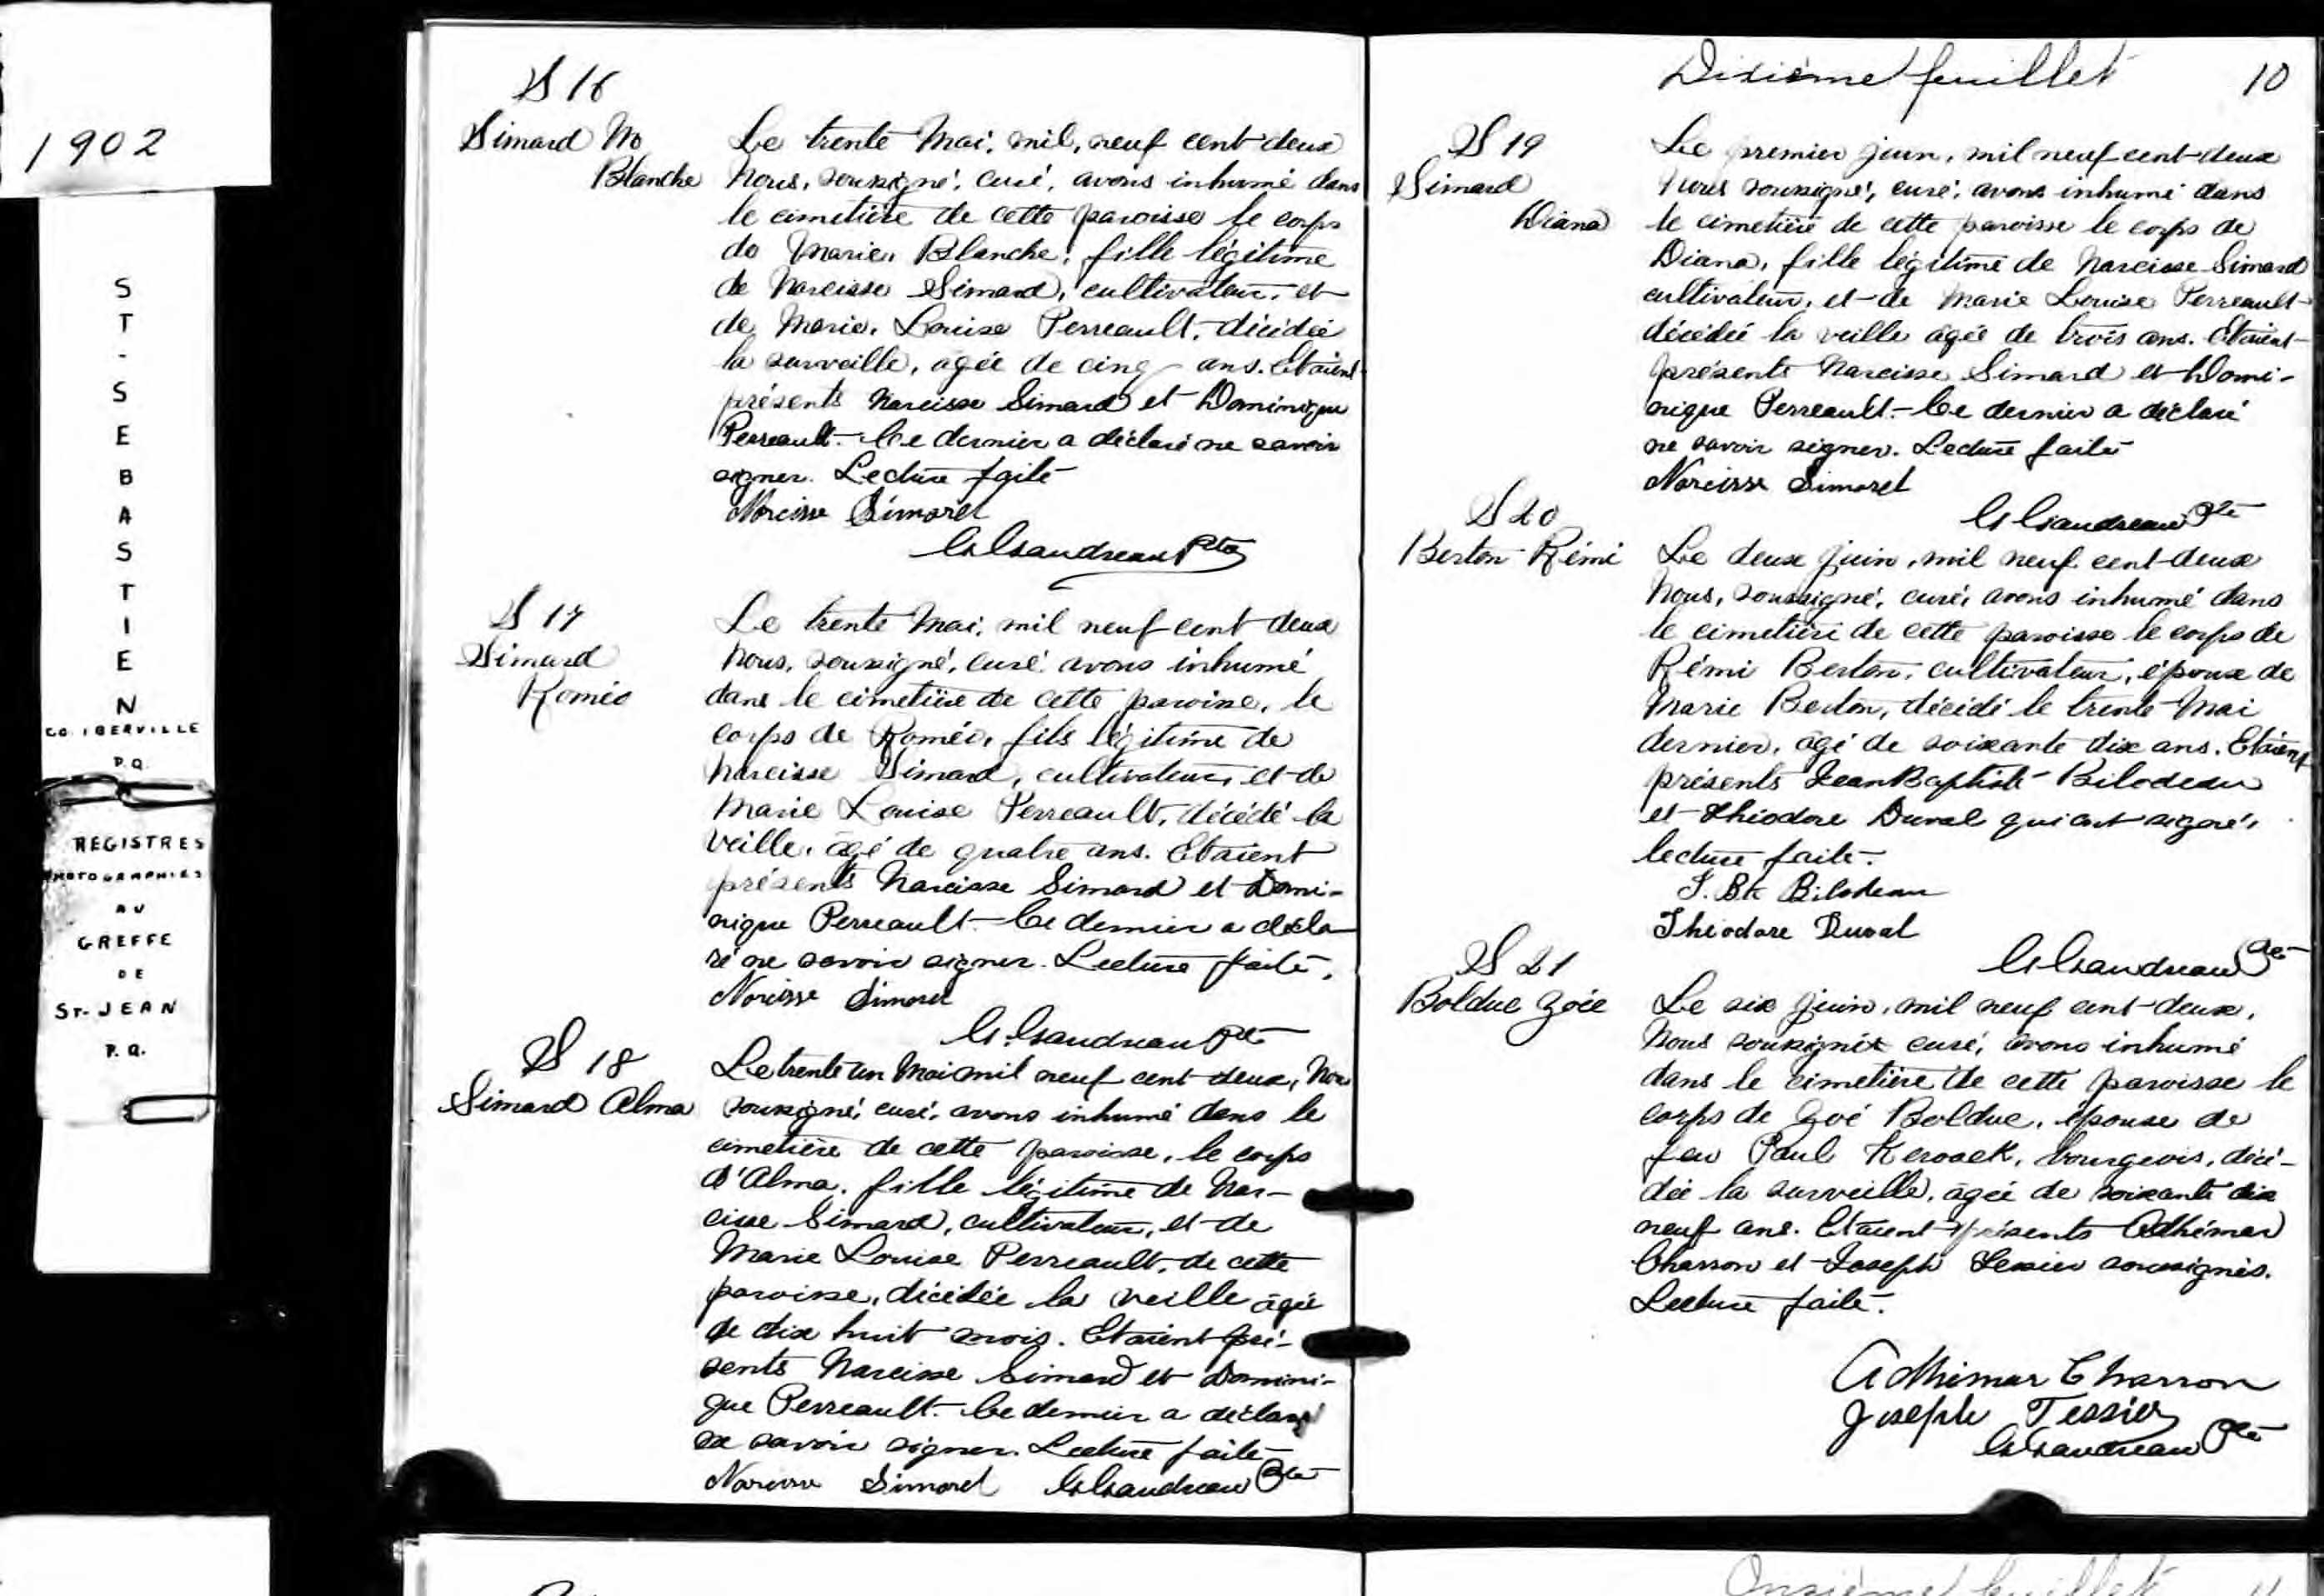 1902
ST-SEBASTIEN
CO. IBERVILLE
P.Q.
REGISTRES
PHOTOGRAPHIES
AU
GREFFE
DE
ST-JEAN
P.Q.
S 16
Simard M
Blanche
Le trente Mai, mil, neuf cent deux
Nous, soussigné, curé, avons inhumé dans
le cimetière de cette paroisse le corps
de Marie, Blanche, fille légitime
de Narcisse Simard, cultivateur, et
de Marie, Louise Perreault, décédée
la surveille, agée de cinq ans. Etaient
présents Narcisse Simard et Dominique
Perreault. Ce dernier a déclaré ne savoir
signer. Lecture faite
Narcisse Simard
Ptre
S 17
Simard
Roméo
Le trente Mai, mil neuf cent deux
Nous, soussigné, curé avons inhumé
dans le cimetière de cette paroisse, le
corps de Roméo, fils légitime de
Narcisse Simard, cultivateur, et de
Marie Louise Perreault, décédé la
veille, agé de quatre ans. Etaient
présents Narcisse Simard et Domi-
nique Perreault. Ce dernier a décla-
ré ne savoir signer. Lecture faite.
Narcisse Simard
Ptre
S 18
Simard Alma
Le trente un Mai mil neuf cent deux, Nous
soussigné, curé, avons inhumé dans le
cimetière de cette paroisse, le corps
d'Alma, fille légitime de Nar-
cisse Simard, cultivateur, et de
Marie Louise Perreault, de cette
paroisse, décédée la veille agée
de dix huit mois. Etaient pré-
sents Narcisse Simard et Domini-
que Perreault. Ce dernier a déclaré
ne savoir signer. Lecture faite
Narcisse Simard Ptre
Dixième feuillet 10
S 19
Simard
Diana
Le premier juin, mil neuf cent deux
Nous soussigné, curé, avons inhumé dans
le cimetière de cette paroisse le corps de
Diana, fille légitime de Narcisse Simard
cultivateur, et de Marie Louise Perreault
décédée la veille agée de trois ans. Etaient
présents Narcisse Simard et Domi-
nique Perreault. Ce dernier a déclaré
ne savoir signer. Lecture faite
Narcisse Simard
Ptre
S 20
Berton Rémi
Le deux juin, mil neuf cent deux
Nous, soussigné, curé, avons inhumé dans
le cimetière de cette paroisse le corps de
Rémi Berton, cultivateur, époux de
Marie Berton, décédé le trente Mai
dernier, agé de soixante dix ans. Etaient
présents Jean Baptiste Bilodeau
et Théodore Duval qui ont signé,
lecture faite.
J. Bte Bilodeau
Théodore Duval
Ptre
S 21
Bolduc Zoée
Le six juin, mil neuf cent deux,
Nous soussigné curé, avons inhumé
dans le cimetière de cette paroisse le
corps de Zoé Bolduc, épouse de
feu Paul Kerouek, bourgeois, décé-
dée la surveille, agée de soixante dix
neuf ans. Etaient présents Adhémar
Charron et Joseph Tessier soussignés.
Lecture faite.
Adhimar Charron
Joseph Tessier
Ptre
Onzième feuillet 11